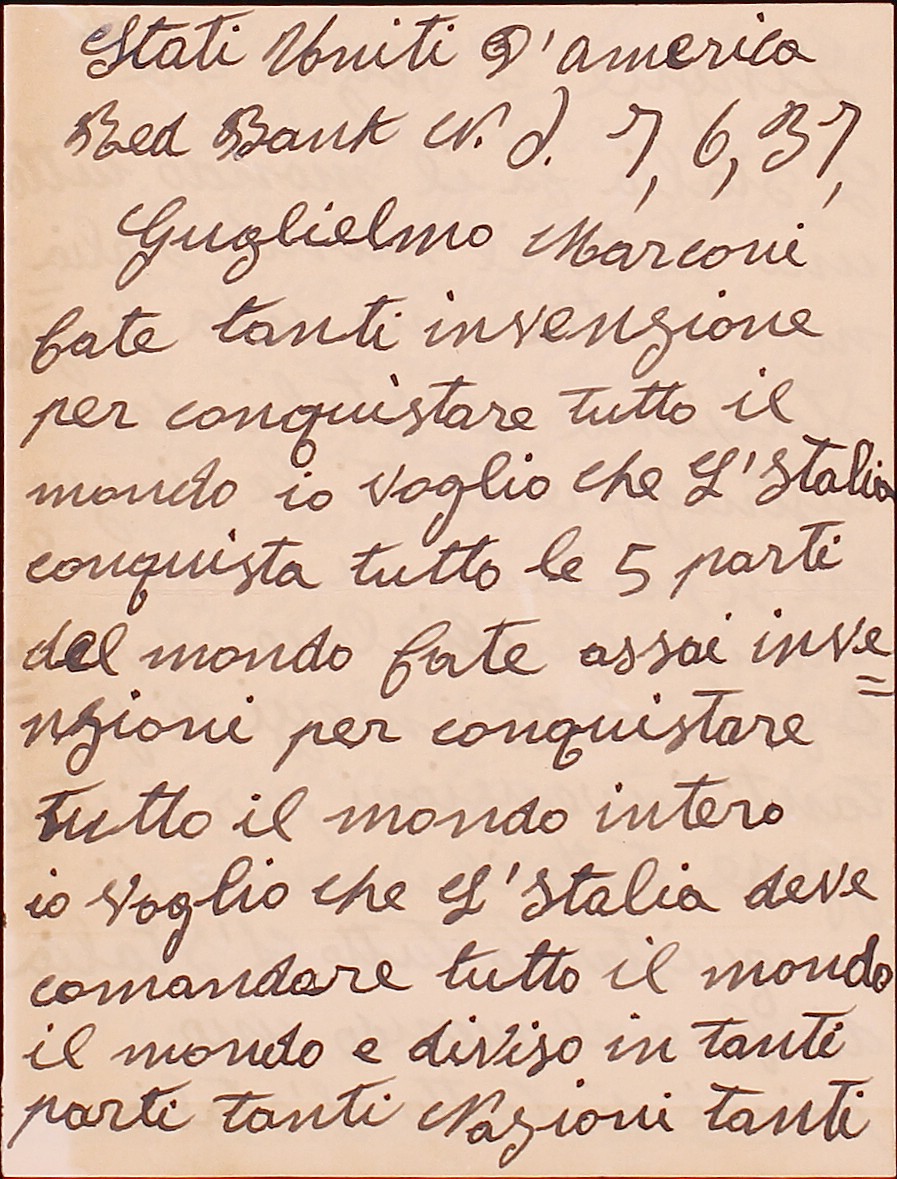 Stati Uniti D'america
Red Bank N. J. 7, 6, 37,
Guglielmo Marconi
fate tanti invenzione
per conquistare tutto il
mondo io voglio che L'Italia
conquista tutto le 5 parti
del mondo fate assai inve=
nzioni per conquistare
tutto il mondo intero
io voglio che L'Italia deve
comandare tutto il mondo
il mondo e diviso in tanti
parti tanti Nazioni tanti